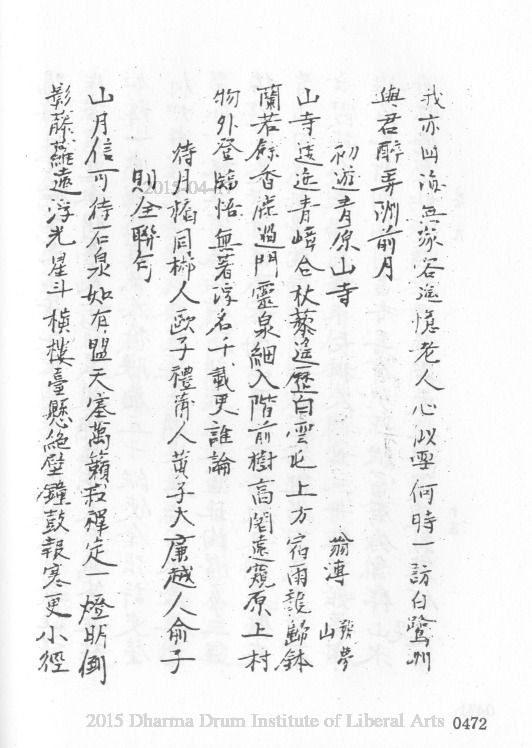 我亦四海無家客進憶老人心似雪何時一訪白鷺州
與君醉弄洲前月
初遊青原山寺
翁溥 號夢山
山寺逶迤青嶂合杖藜遙歷白雲屯上方宿雨龍歸鉢
蘭若餘香虎過門靈泉細入階前樹高閣遠窺原上村
物外登臨悟無著浮名千載更誰論
待月橋同梆人歐子禮蒲人黃子大廉越人俞子
則全聯句
山月信可待石泉如有盟天塞萬籟寂禪定一燈明倒
影藤蘿遠浮光星斗橫樓臺懸絕壁鐘鼓報寒更小徑
2015-04-
2015 Dharma Drum Institute of Liberal Arts
0472